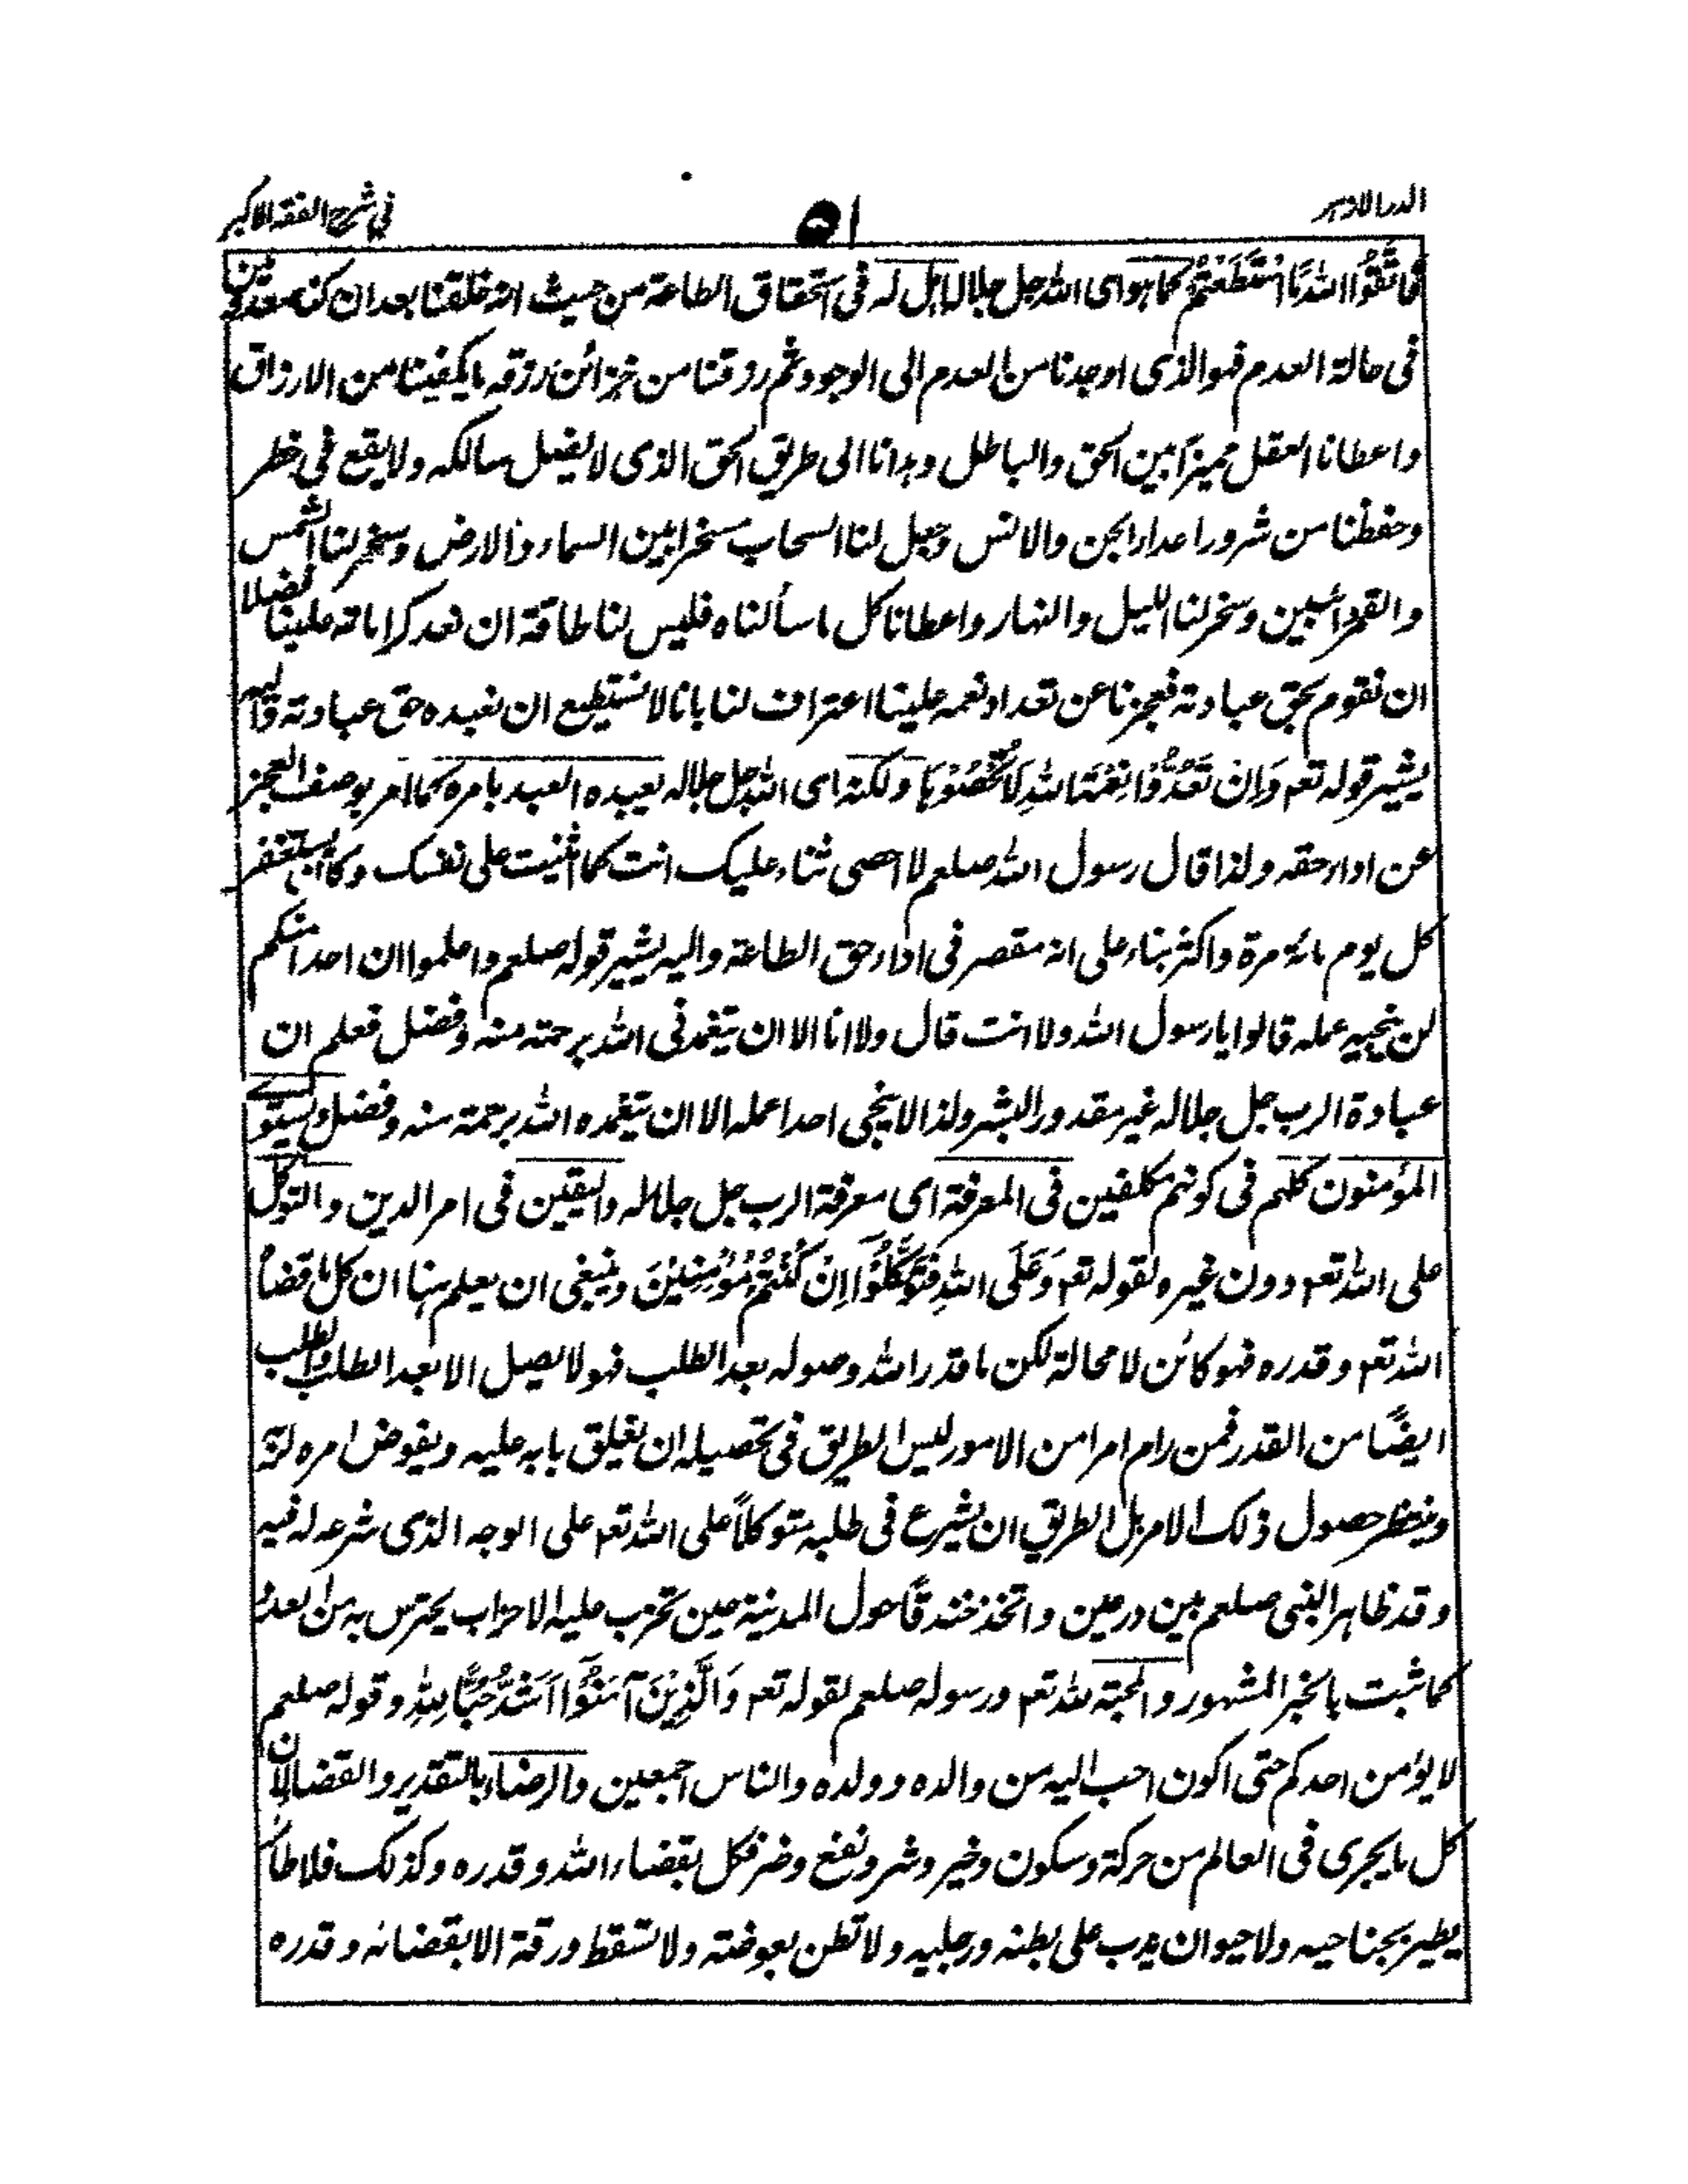 الدر الازہر
۵۱
فی شرح الفقہ الاکبر
فَاتَّقُوا اللّٰہَ مَا اسْتَطَعْتُمْ کما ہو ای اللہ جل جلالہ اہل لہ فی استحقاق الطاعۃ من حیث انہ خلقنا بعد ان کنا معدومین
فی حالۃ العدم فہو الذی اوجدنا من العدم الی الوجود ثم رزقنا من خزائن رزقہ ما یکفینا من الارزاق
واعطانا العقل ممیزاً بین الحق والباطل وہدانا الی طریق الحق الذی لا یضل سالکہ ولا یقع فی خطر
وحفظنا من شرور اعداء الجن والانس وجعل لنا السحاب مسخرا بین السماء والارض وسخر لنا الشمس
والقمر دائبین وسخر لنا اللیل والنہار واعطانا کل ما سألناہ فلیس لنا طاقۃ ان نعد کراماتہ علینا فضلا
ان نقوم بحق عبادتہ فعجزنا عن تعداد نعمہ علینا اعتراف لنا بانا لا نستطیع ان نعبدہ حق عبادتہ والیہ
یشیر قولہ تعہ وَاِنْ تَعُدُّوْا نِعْمَتَ اللّٰہِ لَا تُحْصُوْہَا ولکنہ ای اللہ جل جلالہ یعبدہ العبد بامرہ کما امر بوصف العجز
عن اداء حقہ ولذا قال رسول اللہ صلعم لا احصی ثناء علیک انت کما اثنیت علی نفسک وکان یستغفر
کل یوم مائۃ مرۃ واکثر بناء علی انہ مقصر فی اداء حق الطاعۃ والیہ یشیر قولہ صلعم واعلموا ان احدا منکم
لن ینجیہ عملہ قالوا یا رسول اللہ ولا انت قال ولا انا الا ان یتغمدنی اللہ برحمتہ منہ وفضل فعلم ان
عبادۃ الرب جل جلالہ غیر مقدور البشر ولذا لا ینجی احدا عملہ الا ان یتغمدہ اللہ برحمتہ منہ وفضل ویستوی
المؤمنون کلہم فی کونہم مکلفین فی المعرفۃ ای معرفۃ الرب جل جلالہ والیقین فی امر الدین والتوکل
علی اللہ تعہ دون غیرہ لقولہ تعہ وَعَلَی اللّٰہِ فَتَوَکَّلُوْا اِنْ کُنْتُمْ مُؤْمِنِیْنَ وینبغی ان یعلم ہنا ان کل ما قضاہ
اللہ تعہ وقدرہ فہو کائن لا محالۃ لکن ما قدر اللہ وصولہ بعد الطلب فہو لا یصل الا بعد الطلب والطلب
ایضًا من القدر فمن رام امرا من الامور لیس الطریق فی تحصیلہ ان یغلق بابہ علیہ ویفوض امرہ لربہ
وینتظر حصول ذلک الامر بل الطریق ان یشرع فی طلبہ متوکلاً علی اللہ تعہ علی الوجہ الذی شرعہ لہ فیہ
وقد ظاہر النبی صلعم بین درعین واتخذ خندقًا حول المدینۃ حین تحزب علیہ الاحزاب یحترس بہ من العدو
کما ثبت بالخبر المشہور والمحبۃ للہ تعہ ورسولہ صلعم لقولہ تعہ وَالَّذِیْنَ آمَنُوْا اَشَدُّ حُبًّا لِلّٰہِ وقولہ صلعم
لا یؤمن احدکم حتی اکون احب الیہ من والدہ وولدہ والناس اجمعین والرضاء بالتقدیر والقضاء لان
کل ما یجری فی العالم من حرکۃ وسکون وخیر وشر ونفع وضر فکل بقضاء اللہ وقدرہ وکذلک فلا طائر
یطیر بجناحیہ ولا حیوان یدب علی بطنہ ورجلیہ ولا تطن بعوضتہ ولا تسقط ورقۃ الا بقضائہ وقدرہ